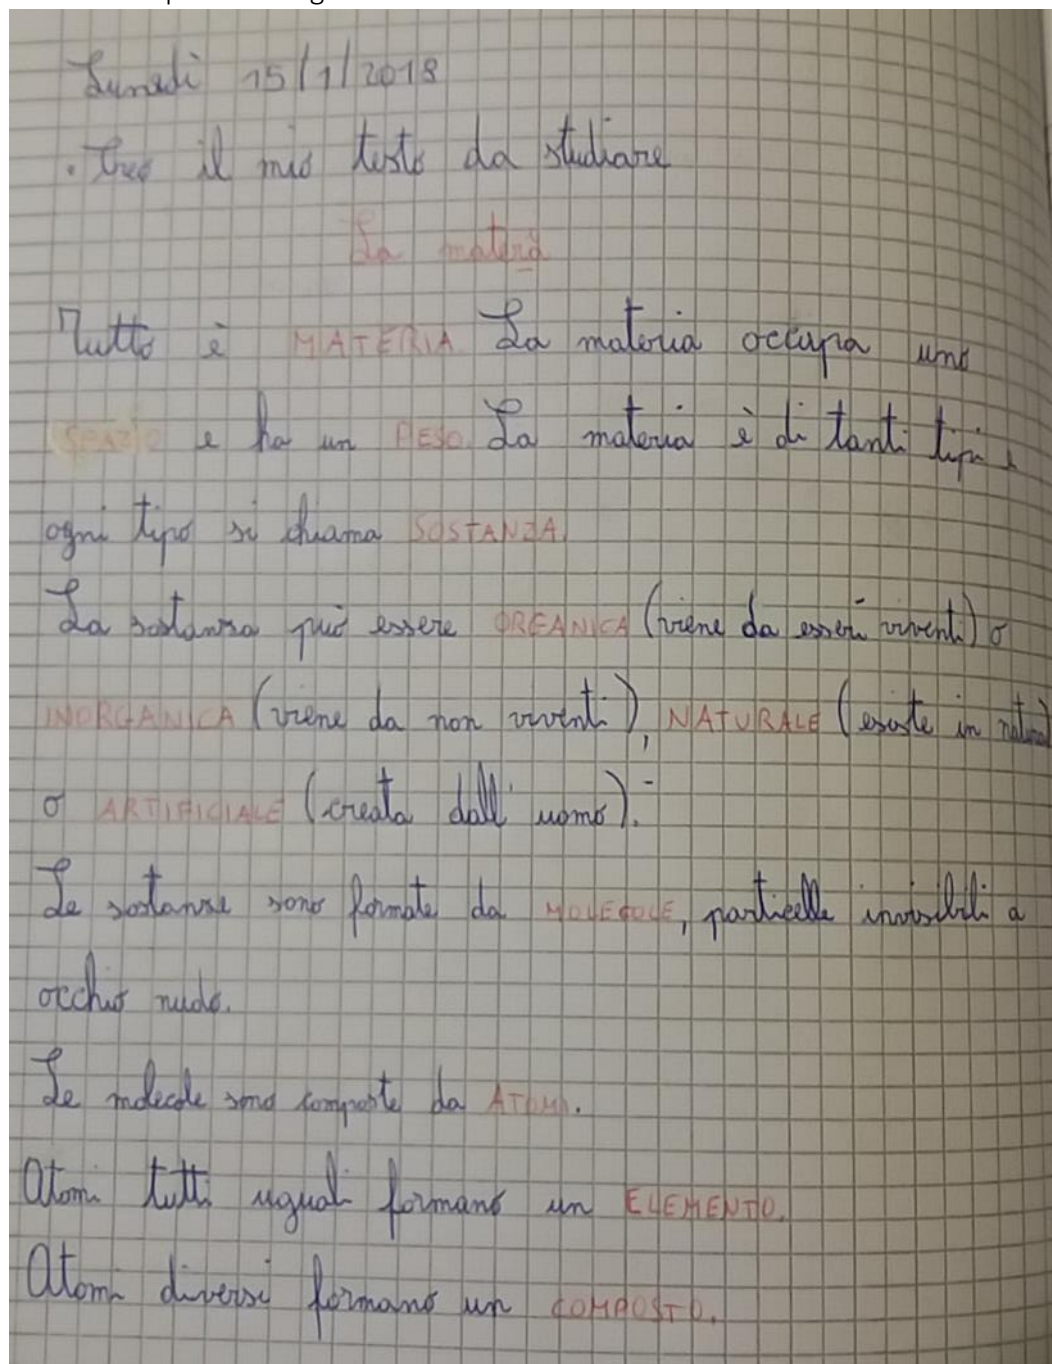 Lunedì 15/1/2018
. Creo il mio testo da studiare
La materia
Tutto è MATERIA. La materia occupa uno
SPAZIO e ha un PESO. La materia è di tanti tipi e
ogni tipo si chiama SOSTANZA.
La sostanza può essere ORGANICA (viene da esseri viventi) o
INORGANICA (viene da non viventi), NATURALE (esiste in natura)
o ARTIFICIALE (creata dall'uomo).
Le sostanze sono formate da MOLECOLE, particelle invisibili a
occhio nudo.
Le molecole sono composte da ATOMI.
Atomi tutti uguali formano un ELEMENTO.
Atomi diversi formano un COMPOSTO.